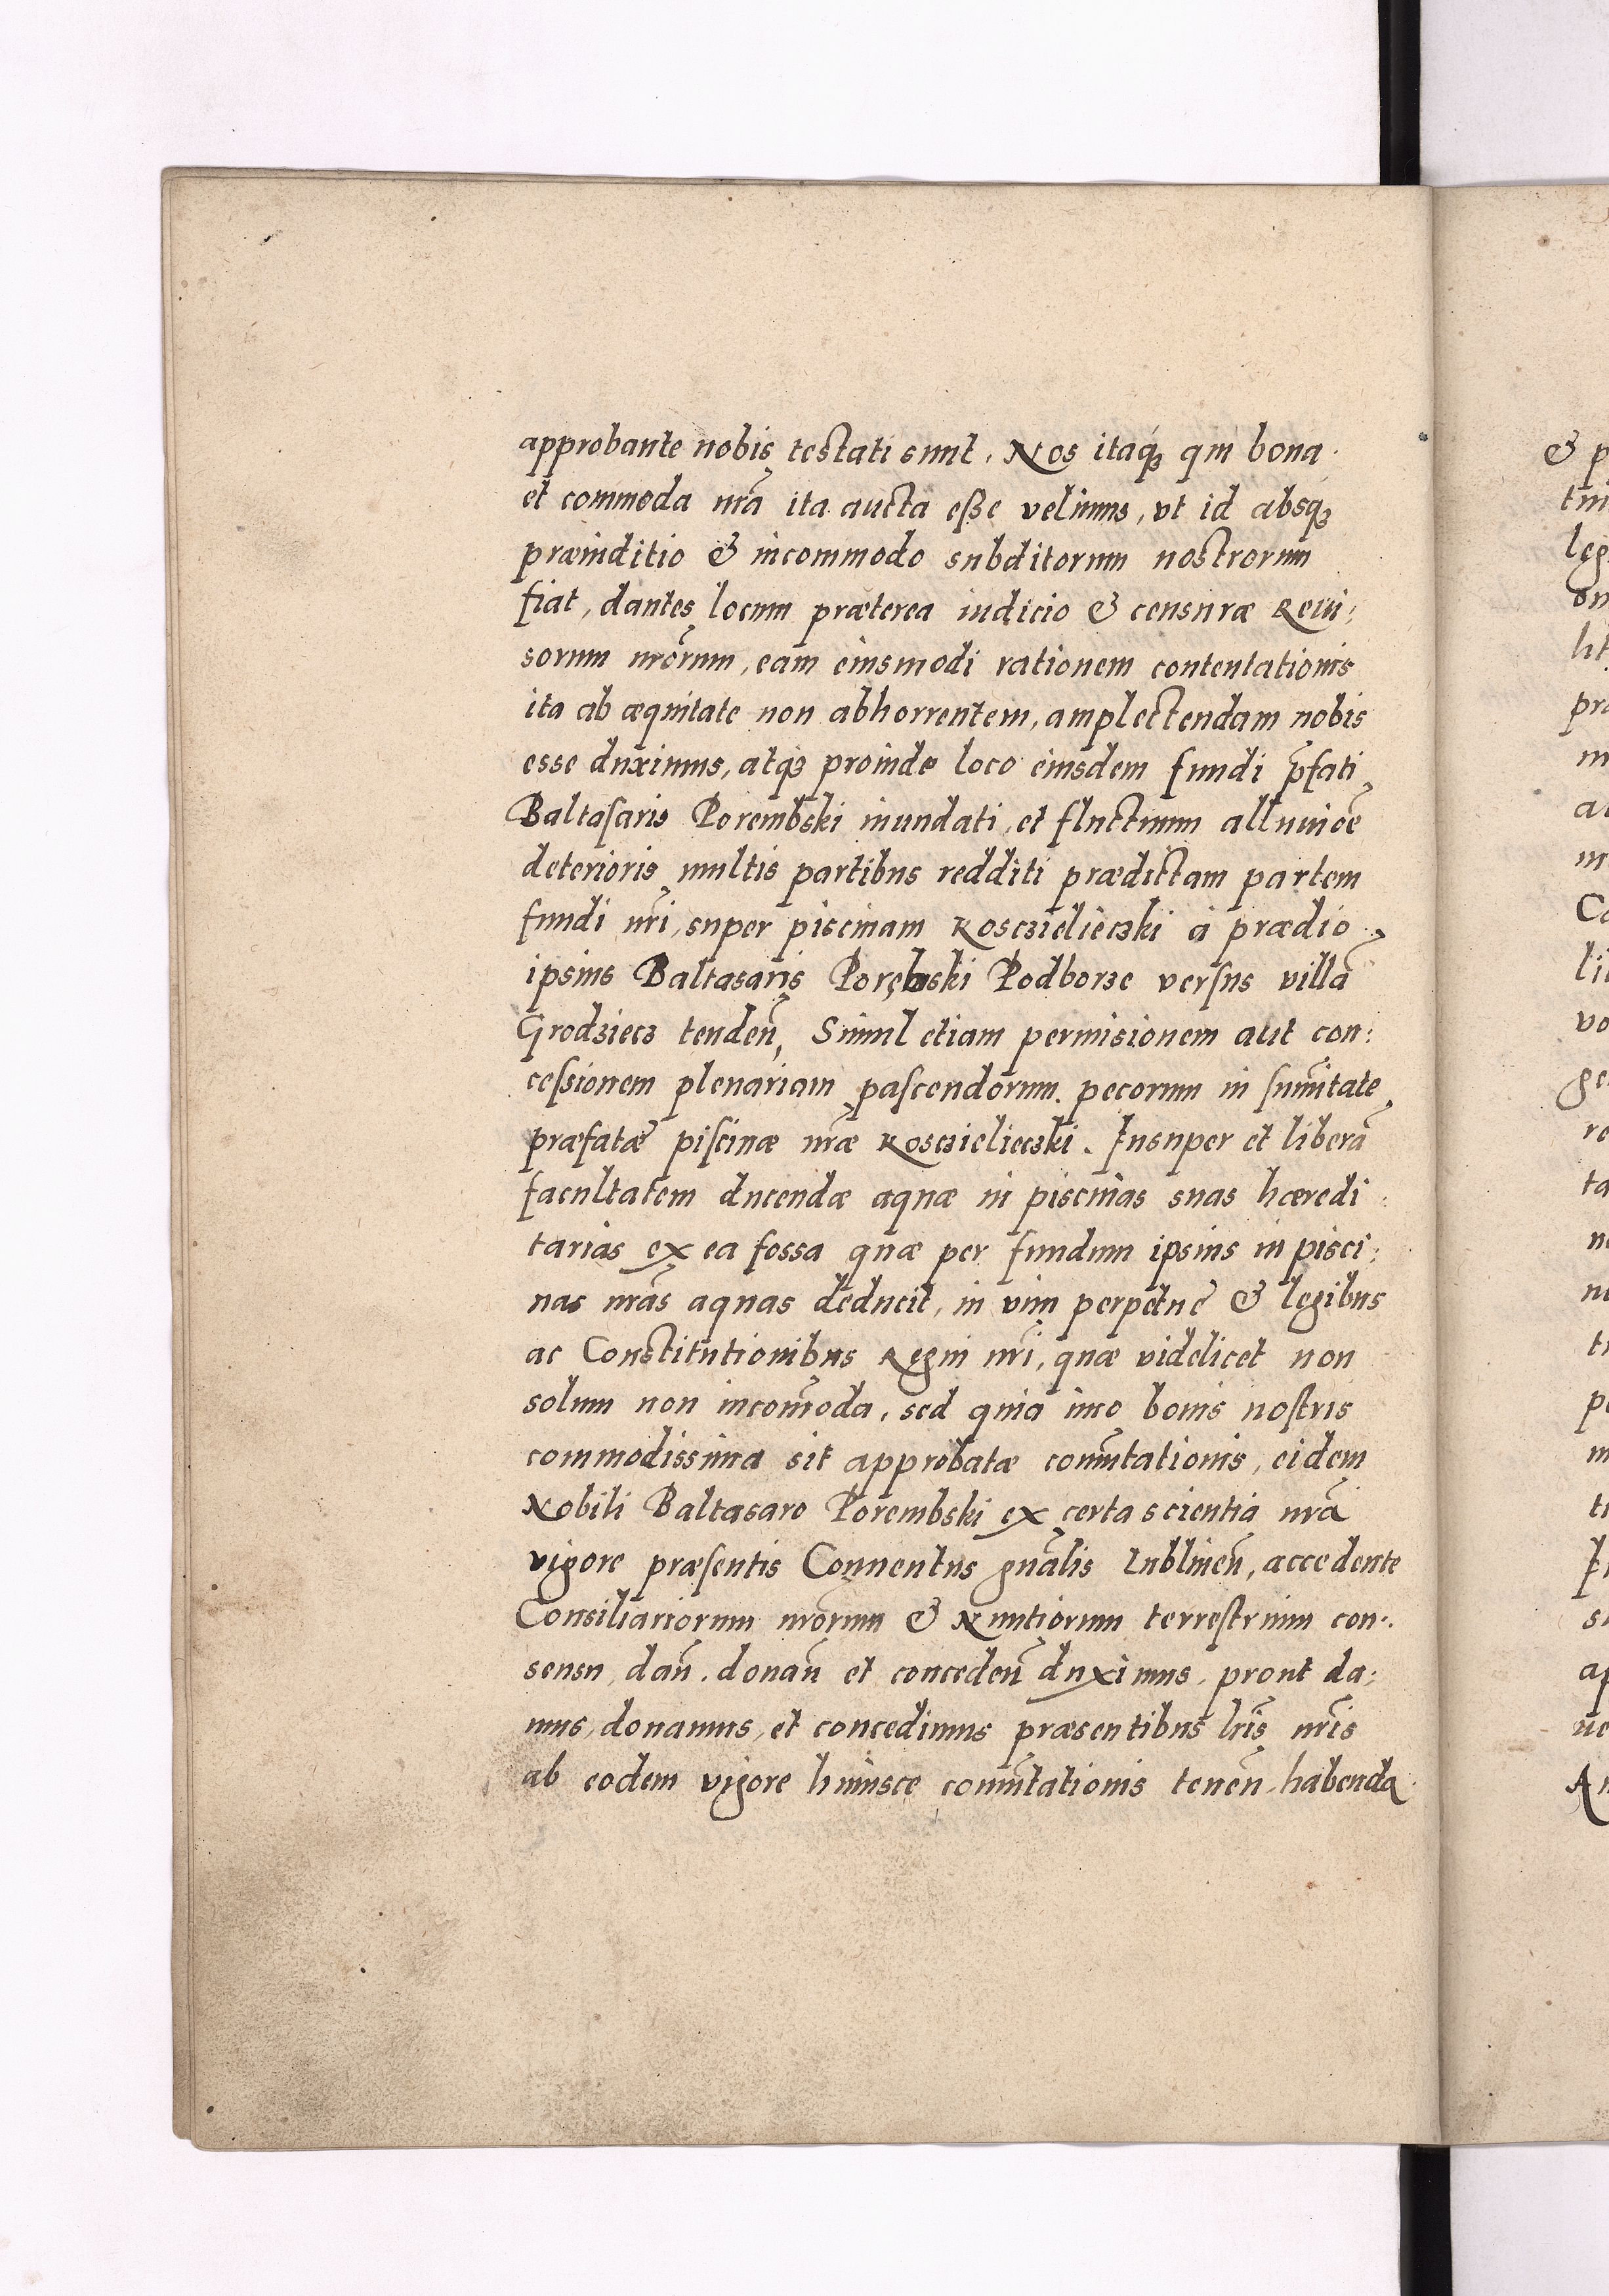 approbante nobis testati sunt. Nos itaq₃ qui bona
et commoda nrã ita aucta eße velimus, vt id absq₃
præiuditio & incommodo subditorum nostrorum
fiat, dantes locum præterea iudicio & censuræ Reui:
sorum nrõrum, eam eiusmodi rationem contentationis
ita ab æquitate non abhorrentem, amplectendam nobis
esse duximus, atq₃ proinde loco eiusdem fundi p̃fati
Baltaſaris Porembski inundati, et fluctuum alluuiõe
deterioris multis partibus redditi prædictam partem
fundi nrĩ, super piscinam Kosczielieczki à prædio
ipsius Baltasaris Porębski Podborze verſus villã
Grodziecz tendeñ, Simul etiam permisionem aut con:
ceſsionem plenariam paſcendorum pecorum in ſum̃itate
præfatæ piſcinæ nræ̃ Kosczielieczki. Insuper et liberã
facultatem ducendæ aquæ in piscinas suas hæredi:
tarias ex ea fossa quæ per fundum ipsius in pisci:
nas nrãs aquas deducit, in vim perpetuẽ & legibus
ac Constitutionibus Regni nrĩ, quæ videlicet non
solum non incom̃oda, sed quia imo bonis noſtris
commodissima sit approbatæ com̃utationis, eidem
Nobili Baltasaro Porembski ex certa scientia nrã
vigore præſentis Conuentus gnãlis Lublineñ, accedente
Consiliariorum nrõrum & Nuntiorum terreſtrium con:
sensu, dañ. donañ et concedeñ duximus, prout da:
mus, donamus, et concedimus præsentibus lrĩs nrĩs
ab eodem vigore huiusce com̃utationis teneñ habenda